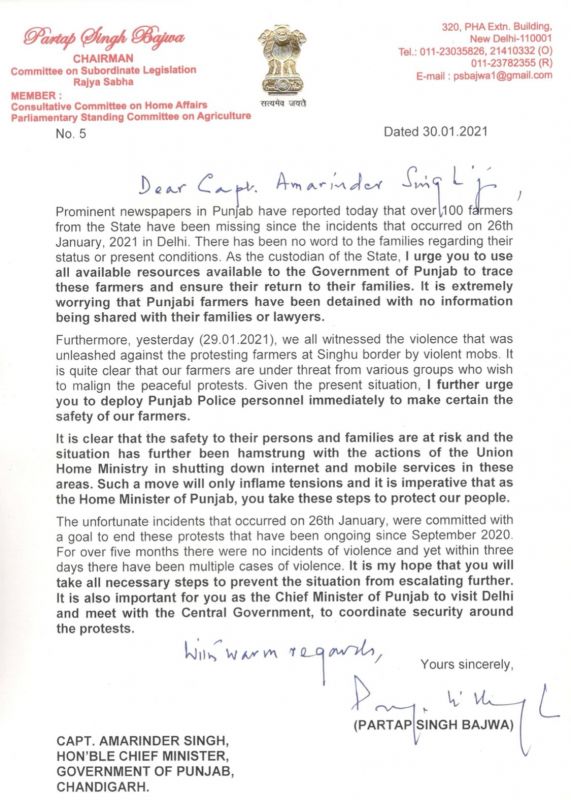 Partap Singh Bajwa
CHAIRMAN
Committee on Subordinate Legislation
Rajya Sabha
MEMBER :
Consultative Committee on Home Affairs
Parliamentary Standing Committee on Agriculture
सत्यमेव जयते
320, PHA Extn. Building,
New Delhi-110001
Tel.: 011-23035826, 21410332 (O)
011-23782355 (R)
E-mail : psbajwa1@gmail.com
No. 5
Dated 30.01.2021
Dear Capt. Amarinder Singh ji,
Prominent newspapers in Punjab have reported today that over 100 farmers
from the State have been missing since the incidents that occurred on 26th
January, 2021 in Delhi. There has been no word to the families regarding their
status or present conditions. As the custodian of the State, I urge you to use
all available resources available to the Government of Punjab to trace
these farmers and ensure their return to their families. It is extremely
worrying that Punjabi farmers have been detained with no information
being shared with their families or lawyers.
Furthermore, yesterday (29.01.2021), we all witnessed the violence that was
unleashed against the protesting farmers at Singhu border by violent mobs. It
is quite clear that our farmers are under threat from various groups who wish
to malign the peaceful protests. Given the present situation, I further urge
you to deploy Punjab Police personnel immediately to make certain the
safety of our farmers.
It is clear that the safety to their persons and families are at risk and the
situation has further been hamstrung with the actions of the Union
Home Ministry in shutting down internet and mobile services in these
areas. Such a move will only inflame tensions and it is imperative that as
the Home Minister of Punjab, you take these steps to protect our people.
The unfortunate incidents that occurred on 26th January, were committed with
a goal to end these protests that have been ongoing since September 2020.
For over five months there were no incidents of violence and yet within three
days there have been multiple cases of violence. It is my hope that you will
take all necessary steps to prevent the situation from escalating further.
It is also important for you as the Chief Minister of Punjab to visit Delhi
and meet with the Central Government, to coordinate security around
the protests.
With warm regards,
Yours sincerely,
(PARTAP SINGH BAJWA)
CAPT. AMARINDER SINGH,
HON'BLE CHIEF MINISTER,
GOVERNMENT OF PUNJAB,
CHANDIGARH.